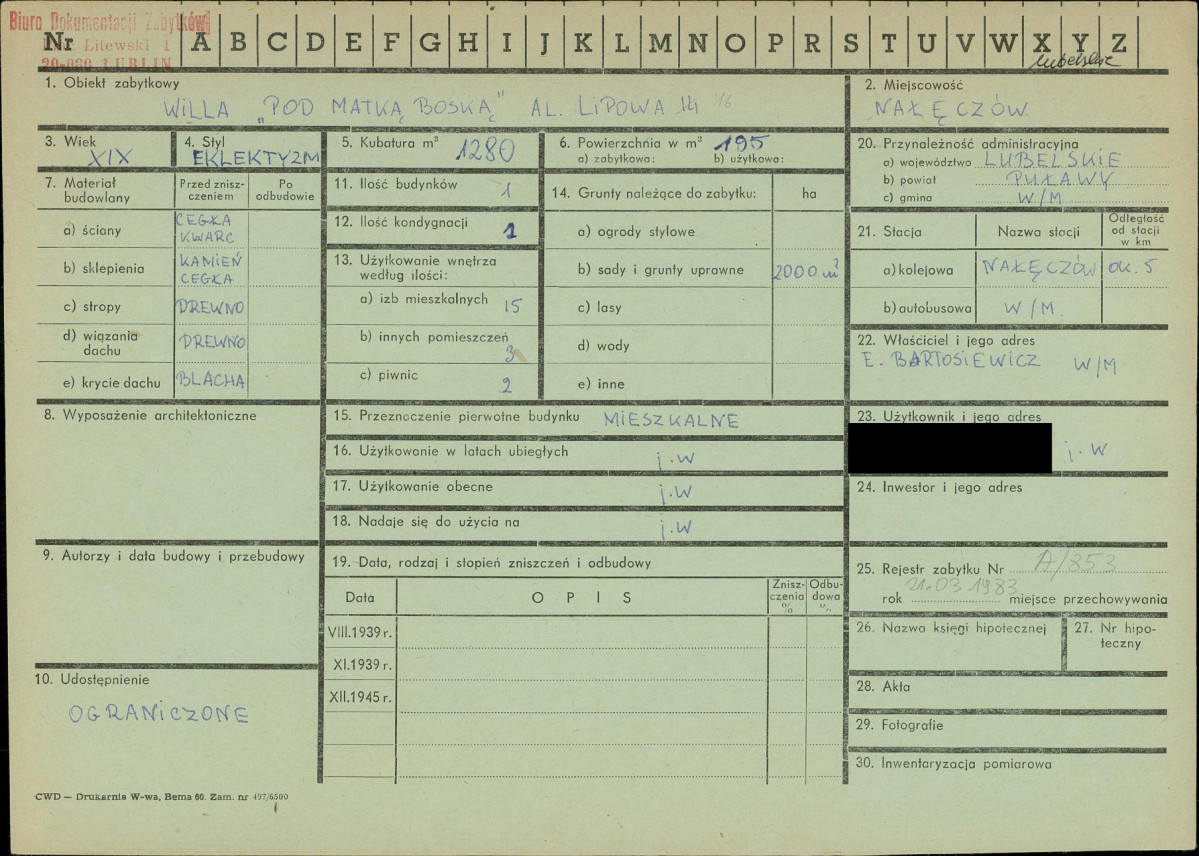 Biuro Dokumentacji Zabytków
Nr Litewski 1 A B C D E F G H I J K L M N O P R S T U V W X Y Z
20-080 LUBLIN
lubelskie
1. Obiekt zabytkowy
WILLA „POD MATKĄ BOSKĄ" AL. LIPOWA 14 16
2. Miejscowość
NAŁĘCZÓW
3. Wiek
XIX
4. Styl
EKLEKTYZM
5. Kubatura m³ 1280
6. Powierzchnia w m² 195
a) zabytkowa: b) użytkowa:
7. Materiał budowlany
Przed zniszczeniem
Po odbudowie
a) ściany CEGŁA
KWARC
b) sklepienia KAMIEŃ
CEGŁA
c) stropy DREWNO
d) wiązania dachu DREWNO
e) krycie dachu BLACHA
8. Wyposażenie architektoniczne
9. Autorzy i data budowy i przebudowy
10. Udostępnienie
OGRANICZONE
11. Ilość budynków 1
12. Ilość kondygnacji 1
13. Użytkowanie wnętrza
według ilości:
a) izb mieszkalnych 15
b) innych pomieszczeń
3
c) piwnic 2
14. Grunty należące do zabytku: ha
a) ogrody stylowe
b) sady i grunty uprawne 2000 m²
c) lasy
d) wody
e) inne
15. Przeznaczenie pierwotne budynku MIESZKALNE
16. Użytkowanie w latach ubiegłych j.w
17. Użytkowanie obecne j.w
18. Nadaje się do użycia na j.w
19. Data, rodzaj i stopień zniszczeń i odbudowy
Data OPIS Zniszczenia % Odbudowa %
VIII.1939 r.
XI.1939 r.
XII.1945 r.
20. Przynależność administracyjna
a) województwo LUBELSKIE
b) powiat PUŁAWY
c) gmina W/M
21. Stacja Nazwa stacji Odległość od stacji w km
a) kolejowa NAŁĘCZÓW ok. 5
b) autobusowa W/M.
22. Właściciel i jego adres
E. BARTOSIEWICZ W/M
23. Użytkownik i jego adres
j.w
24. Inwestor i jego adres
25. Rejestr zabytku Nr A/853
rok 21.03.1983 miejsce przechowywania
26. Nazwa księgi hipotecznej
27. Nr hipoteczny
28. Akta
29. Fotografie
30. Inwentaryzacja pomiarowa
CWD — Drukarnia W-wa, Bema 60. Zam. nr 497/6500